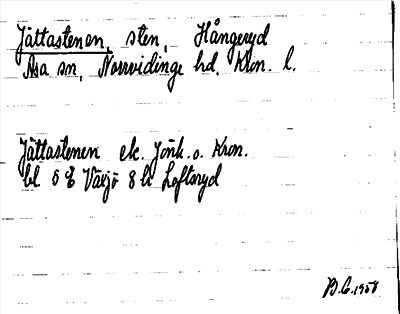 Jättastenen, sten, Hångeryd
Asa sn, Norrvidinge hd. Kron. l.
Jättastenen ek. Jönk. o. Kron.
bl 5 Ö Växjö 8 h Loftsryd
B.G. 1958